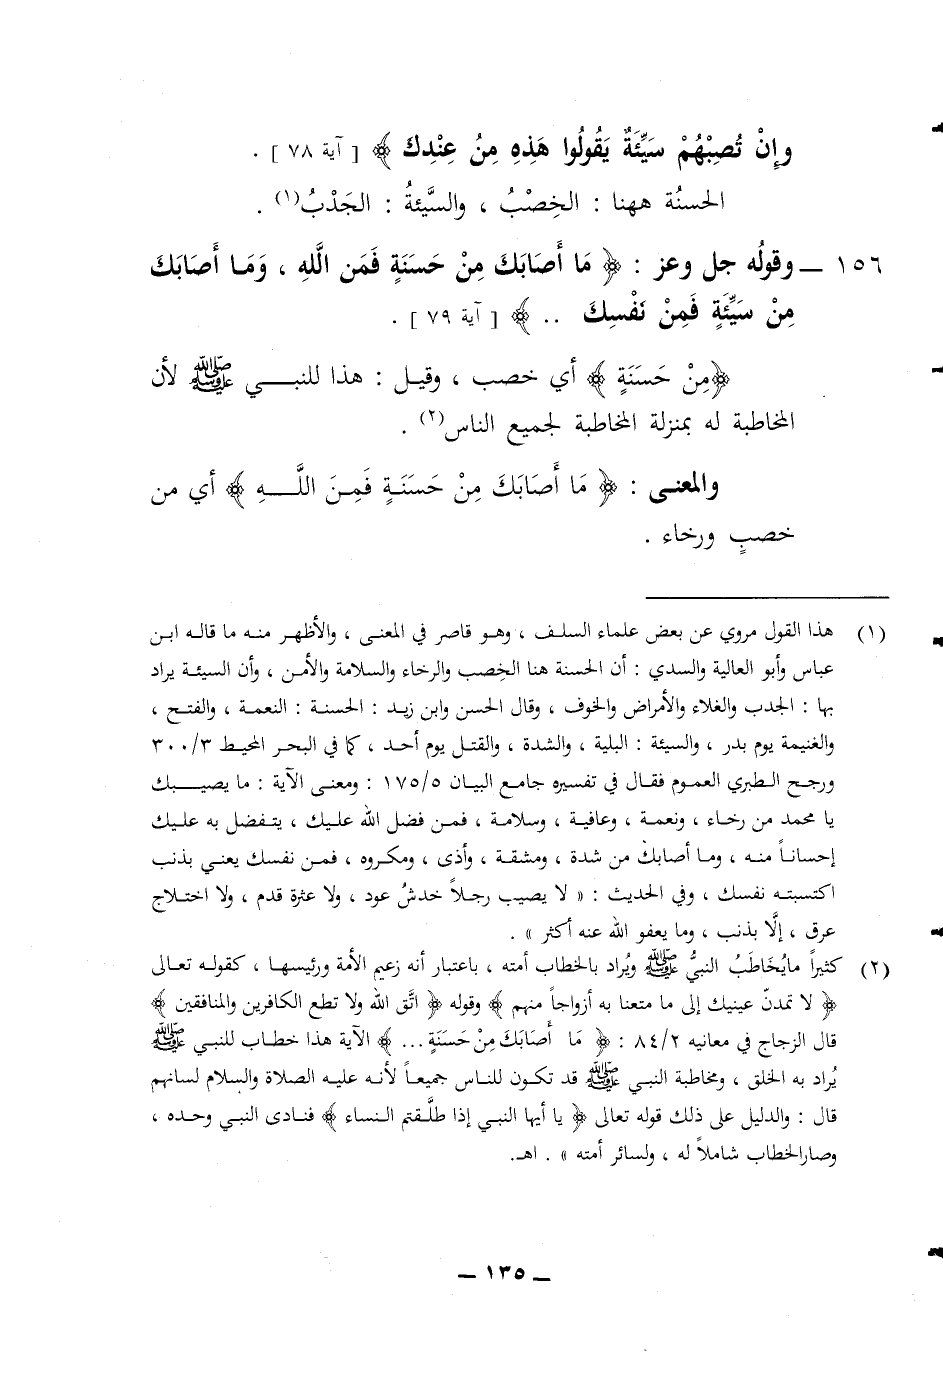 وإِنْ تُصِبْهُمْ سَيِّئَةٌ يَقُولُوا هَذِهِ مِنُ عِنْدِكَ ﴾ [ آية ٧٨ ] .
الحسنُة ههنا : الخِصْبُ ، والسَّيئةُ : الجَدْبُ(١) .
١٥٦ ــ وقولُه جل وعز : ﴿ مَا أَصَابَكَ مِنْ حَسَنَةٍ فَمَن اللَّهِ ، وَمَا أَصَابَكَ
مِنْ سَيِّئَةٍ فَمِنْ نَفْسِكَ .. ﴾ [ آية ٧٩ ] .
﴿مِنْ حَسَنَةٍ ﴾ أي خصب ، وقيل : هذا للنبي ﷺ لأن
المخاطبة له بمنزلة المخاطبة لجميع الناس(٢) .
والمعنى : ﴿ مَا أَصَابَكَ مِنْ حَسَنَةٍ فَمِنَ اللَّهِ ﴾ أي من
خصبٍ ورخاء .
(١) هذا القول مروي عن بعض علماء السلف ، وهو قاصر في المعنى ، والأظهر منه ما قاله ابن
عباس وأبو العالية والسدي : أن الحسنة هنا الخِصب والرخاء والسلامة والأمن ، وأن السيئة يراد
بها : الجدب والغلاء والأمراض والخوف ، وقال الحسن وابن زيد : الحسنة : النعمة ، والفتح ،
والغنيمة يوم بدر ، والسيئة : البلية ، والشدة ، والقتل يوم أحد ، كما في البحر المحيط ٣٠٠/٣
ورجح الطبري العموم فقال في تفسيره جامع البيان ١٧٥/٥ : ومعنى الآية : ما يصيبك
يا محمد من رخاء ، ونعمة ، وعافية ، وسلامة ، فمن فضل الله عليك ، يتفضل به عليك
إحساناً منه ، وما أصابك من شدة ، ومشقة ، وأذى ، ومكروه ، فمن نفسك يعني بذنب
اكتسبته نفسك ، وفي الحديث : « لا يصيب رجلاً خدشُ عود ، ولا عثرة قدم ، ولا اختلاج
عرق ، إلَّا بذنب ، وما يعفو الله عنه أكثر » .
(٢) كثيراً مايُخَاطَبُ النبيُّ ﷺ ويُراد بالخطاب أمته ، باعتبار أنه زعيم الأمة ورئيسها ، كقوله تعالى
﴿ لا تمدنّ عينيك إلى ما متعنا به أزواجاً منهم ﴾ وقوله ﴿ اتَّق الله ولا تطع الكافرين والمنافقين ﴾
قال الزجاج في معانيه ٨٤/٢ : ﴿ مَا أَصَابَكَ مِنْ حَسَنَةٍ... ﴾ الآية هذا خطاب للنبي ﷺ
يُراد به الخلق ، ومخاطبة النبي ﷺ قد تكون للناس جميعاً لأنه عليه الصلاة والسلام لسانهم
قال : والدليل على ذلك قوله تعالى ﴿ يا أيها النبي إذا طلَّقتم النساء ﴾ فنادى النبي وحده ،
وصارالخطاب شاملاً له ، ولسائر أمته » . اهـ.
ــ ١٣٥ ــ